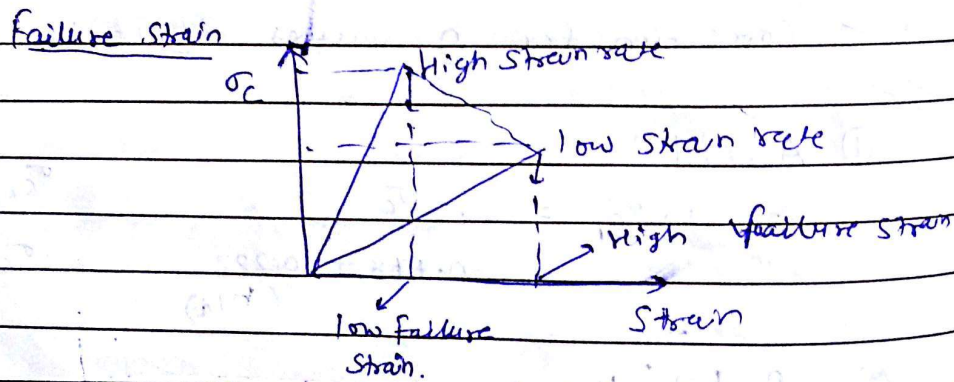 Failure Strain
High Strain rate
σc
low Strain rate
High failure Strain
low failure
Strain.
Strain